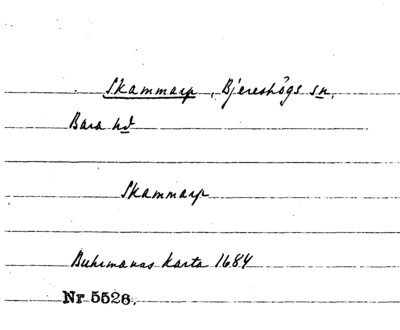 Skammarp, Bjereshögs sn,
Bara hd
Skammarp
Buhrmanns karta 1684
Nr 5526.